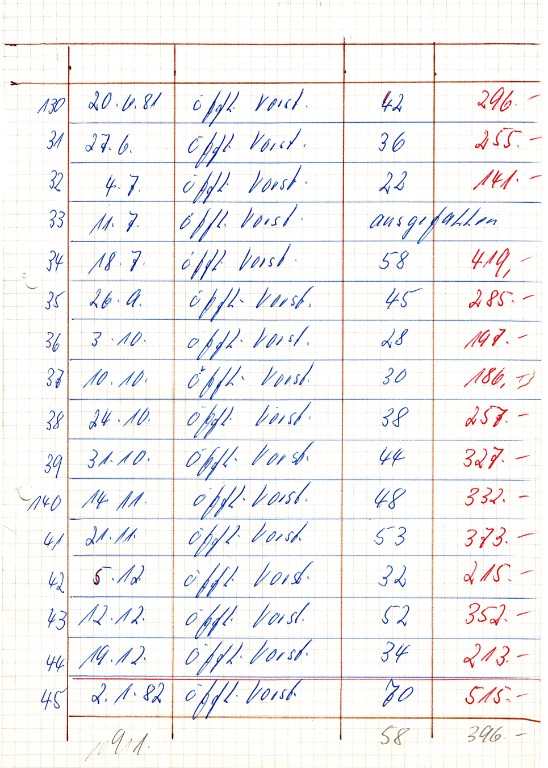 130 20.6.81 öfftl. Vorst. 42 296.-
31 27.6. öfftl. Vorst. 36 255.-
32 4.7. öfftl. Vorst. 22 141.-
33 11.7. öfftl. Vorst. ausgefallen
34 18.7. öfftl. Vorst. 58 419,-
35 26.9. öfftl. Vorst. 45 285.-
36 3.10. öfftl. Vorst. 28 197.-
37 10.10. öfftl. Vorst. 30 186,-
38 24.10. öfftl. Vorst. 38 257.-
39 31.10. öfftl. Vorst. 44 327.-
140 14.11. öfftl. Vorst. 48 332.-
41 21.11. öfftl. Vorst. 53 373.-
42 5.12 öfftl. Vorst. 32 215.-
43 12.12. öfftl. Vorst. 52 352.-
44 19.12. öfftl. Vorst. 34 213.-
45 2.1.82 öfftl. Vorst. 70 515.-
9.1. 58 396.-